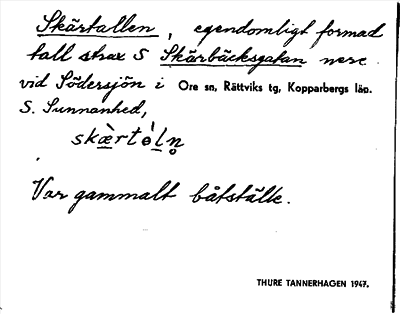 Skärtallen, egendomligt formad
tall strax S Skärbäcksgatan nere
vid Södersjön i Ore sn, Rättviks tg, Kopparbergs län.
S. Sunnanhed,
Var gammalt båtställe.
THURE TANNERHAGEN 1947.